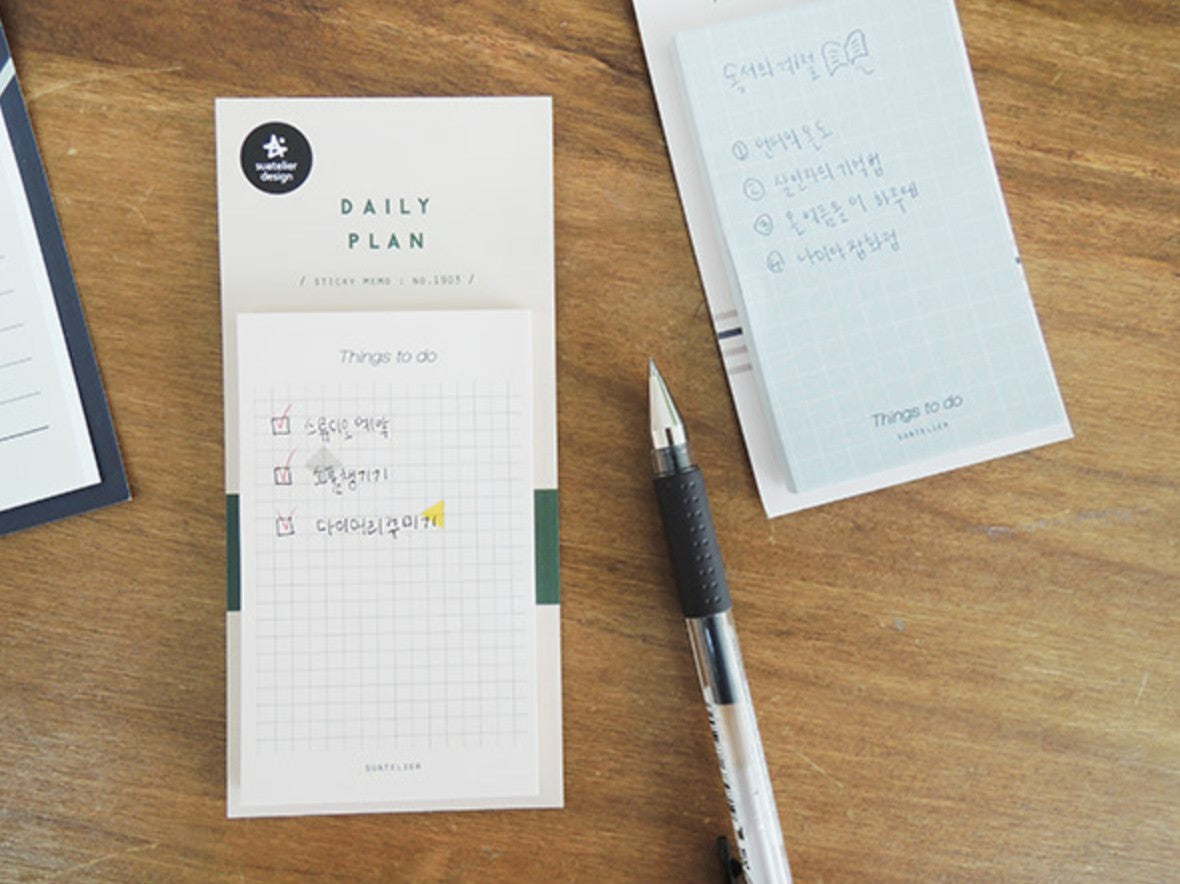 suatelier
design
DAILY
PLAN
/ STICKY MEMO : NO.1903 /
Things to do
스튜디오 예약
소품 챙기기
다이어리 꾸미기
SUATELIER
독서의 계절
① 언어의 온도
② 살인자의 기억법
③ 온 여름을 이 하루에
④ 나미야 잡화점
Things to do
SUATELIER